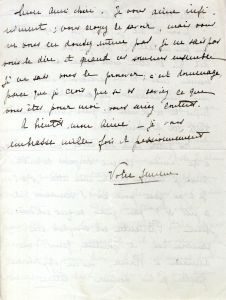 mon ami chéri. Je vous aime infi-
niment ; vous croyez le savoir, mais vous
ne vous en doutez même pas. Je ne sais pas
vous le dire, et quand nous sommes ensemble
je ne sais vous le prouver, c'est dommage
parce que je crois que si vous saviez ce que
vous êtes pour moi, vous seriez content.
A bientôt, mon aimé - je vous
embrasse mille fois et passionnément
Votre